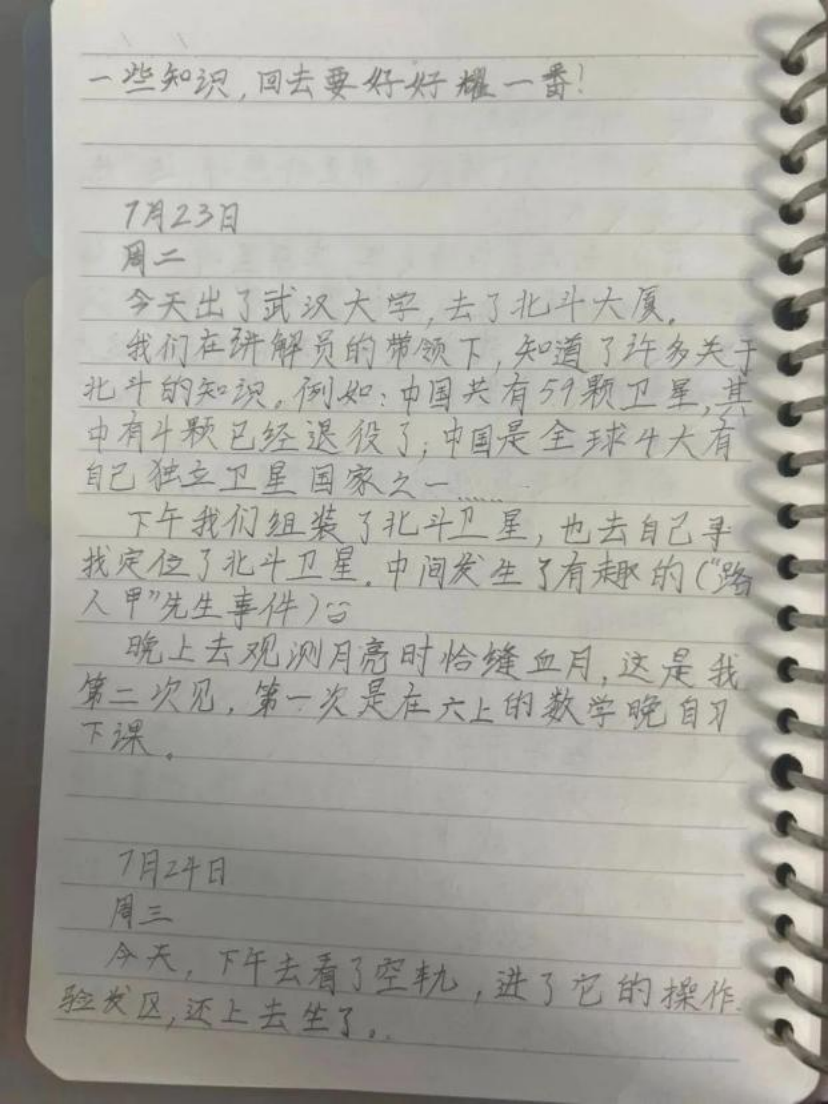 一些知识,回去要好好耀一番!
7月23日
周二
今天出了武汉大学,去了北斗大厦。
我们在讲解员的带领下,知道了许多关于
北斗的知识。例如:中国共有59颗卫星,其
中有4颗已经退役了;中国是全球4大有
自己独立卫星国家之一……
下午我们组装了北斗卫星,也去自己寻
找定位了北斗卫星。中间发生了有趣的("路
人甲"先生事件)
晚上去观测月亮时恰缝血月,这是我
第二次见,第一次是在六上的数学晚自习
下课。
7月24日
周三
今天,下午去看了空轨,进了它的操作
验发区,还上去生了。